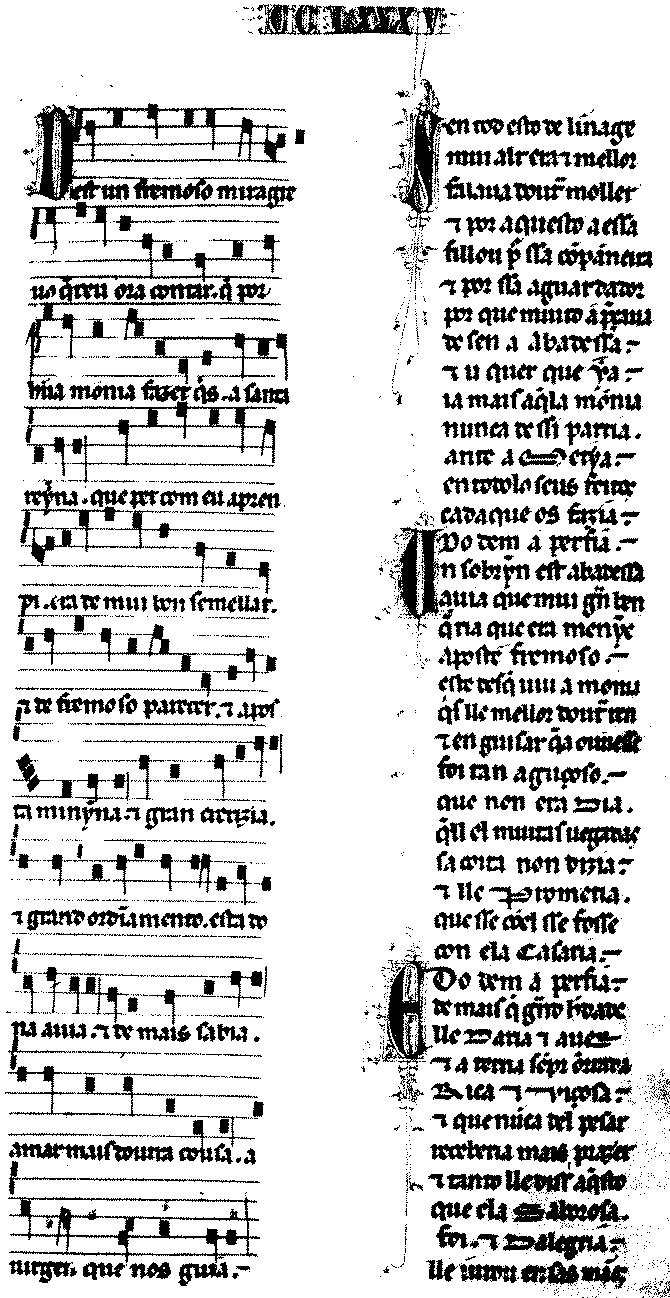 CCLXXXV
Dest un fremoso miragre
uos q̃reu ora contar. q̃ por
hũa monia fazer q̇s. a santa
reỹna. que per com eu apren
pi. era de mui bon semellar.
⁊ de fremoso parecer. ⁊ apos
ta minỹna. ⁊ gran crerizia.
⁊ grand ordĩamento. esta do
na auia. ⁊ de mais sabia.
amar mais doutra cousa. a
uirgen. que nos guia.
en tod esto de linage
mui alt era ⁊ mellor
falaua dout̃ moller
⁊ por aquesto a essa
fillou p̃ ssa cõpãneira
⁊ por ssa aguardador
por que muito
de sen a abadessa
⁊ u quer que ỹa
ia mais aq̃la mõnia
nunca dessi partia.
ante a
en todolos seus feitos
cada que os fazia
Do dem a perfia.
n sobrỹn est abadessa
auia que mui gñ ben
q̃ria que era menỹo
aposto fremoso.
este des q̃ uiu a monia
q̇s lle mellor dout̃ ren
⁊ en guisar q̃a ouuesse
foi tan aguçoso.
que non era dia.
q̃ll el muitas uegadas
sa coita non dizia
⁊ lle prometia.
que sse cõel sse fosse
con ela casaria.
Do dem a perfia
de mais q̃ gñd h̃dade
lle daria ⁊ auer
⁊ a terria sẽpr õrrada
Rica ⁊ viçosa
⁊ que nũca del pesar
receberia mais prazer
⁊ tanto lle diss aq̃sto
que ela saborosa.
foi. ⁊ dalegria